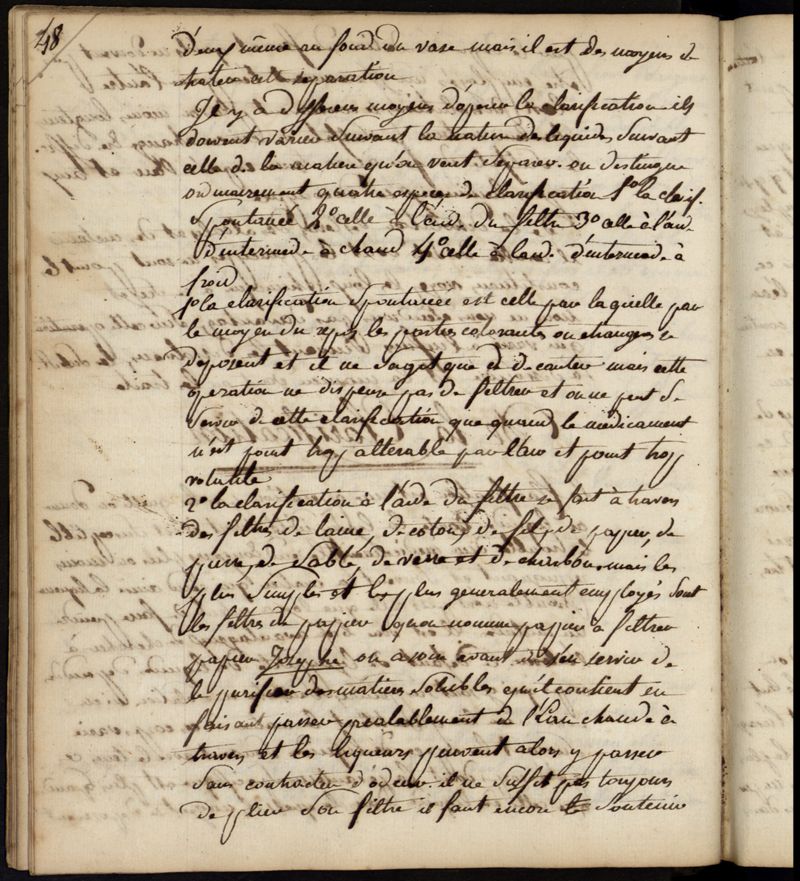 48
d'eux même au fond du vase mais il est des moyens de
hater cette separation
Il y a differens moyens d'operer la clarification ils
doivent varier suivant la nature des liquides suivant
celle de la matiere qu'on veut separer. on distingue
ordinairement quatre especes de clarification 1o la clarif.
spontanée 2o celle à l'aide du filtre 3o celle à l'aide
d'intermede à chaud 4o celle à l'aide d'intermede à
froid
1o la clarification spontanée est celle par laquelle par
le moyen du repos les parties colorantes ou etrangeres se
deposent et il ne s'agit que de decanter mais cette
operation ne dispense pas de filtrer et on ne peut se
servir de cette clarification que quand le médicament
n'est point trop alterable par l'air et point trop
volatile
2o la clarification à l'aide du filtre se fait à travers
des filtres de laine, de coton, de fil, de papier, de
pierre, de sable, de verre et de charbon mais les
plus simples et les plus generalement employés sont
les filtres de papier qu'on nomme papier a filtrer
papier Joseph on a soin avant de s'en servir de
le purifier des matieres solubles qu'il contient en
faisant passer prealablement de l'Eau chaude à
travers et les liqueurs peuvent alors y passer
sans contracter d'odeur. il ne suffit pas toujours
de plier son filtre il faut encore le soutenir